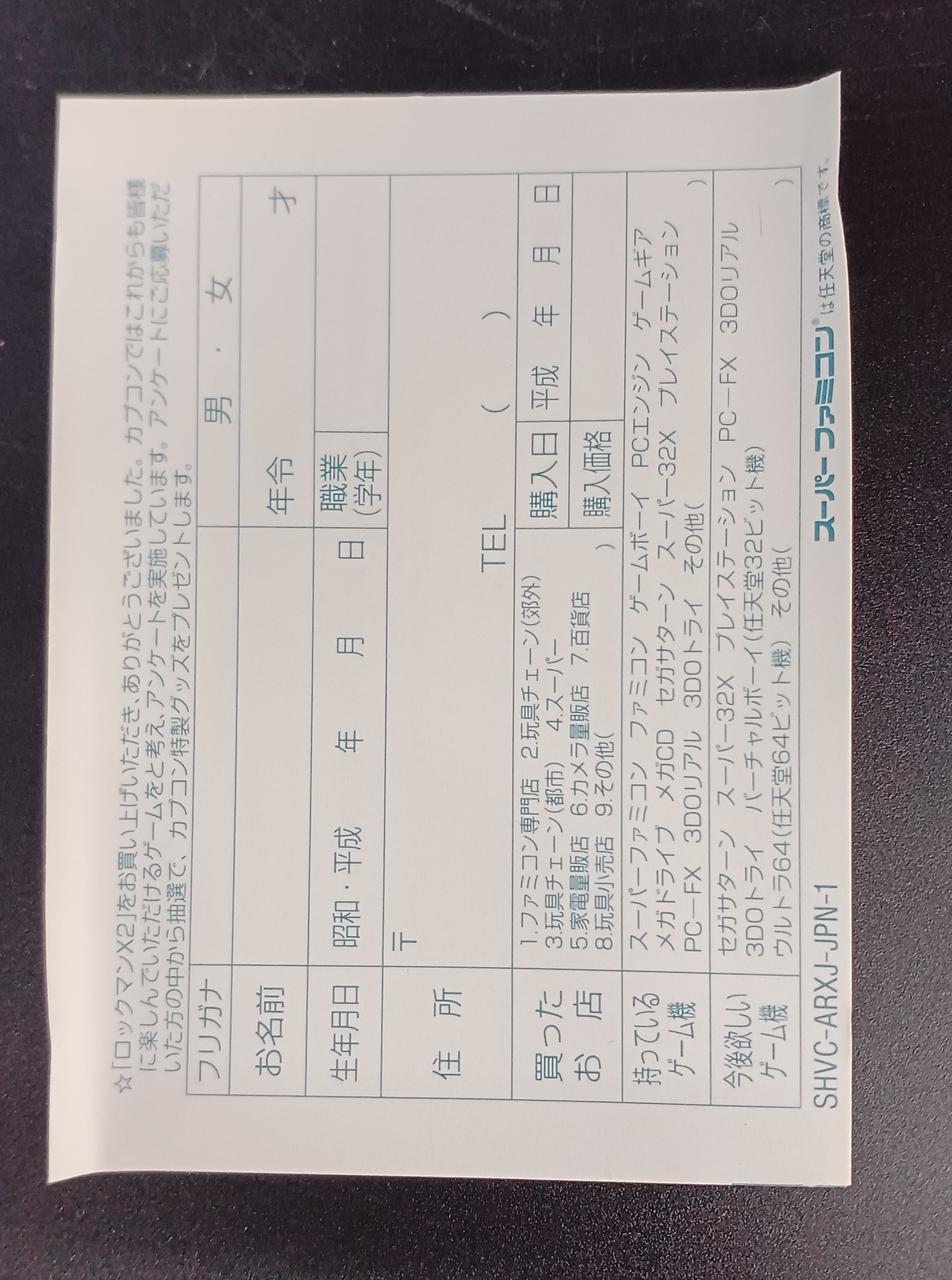 ☆「ロックマンX2」をお買い上げいただき、ありがとうございました。カプコンではこれからも皆様
に楽しんでいただけるゲームをと考え、アンケートを実施しています。アンケートにご応募いただ
いた方の中から抽選で、カプコン特製グッズをプレゼントします。
フリガナ
男・女
お名前
年令
才
生年月日
昭和・平成 年 月 日
職業
(学年)
住所
〒
TEL ( )
買った
お店
1.ファミコン専門店 2.玩具チェーン(郊外)
3.玩具チェーン(都市) 4.スーパー
5.家電量販店 6.カメラ量販店 7.百貨店
8.玩具小売店 9.その他( )
購入日
平成 年 月 日
購入価格
持っている
ゲーム機
スーパーファミコン ファミコン ゲームボーイ PCエンジン ゲームギア
メガドライブ メガCD セガサターン スーパー32X プレイステーション
PC-FX 3DOリアル 3DOトライ その他( )
今後欲しい
ゲーム機
セガサターン スーパー32X プレイステーション PC-FX 3DOリアル
3DOトライ バーチャルボーイ(任天堂32ビット機)
ウルトラ64(任天堂64ビット機) その他( )
SHVC-ARXJ-JPN-1
スーパーファミコン®は任天堂の商標です。